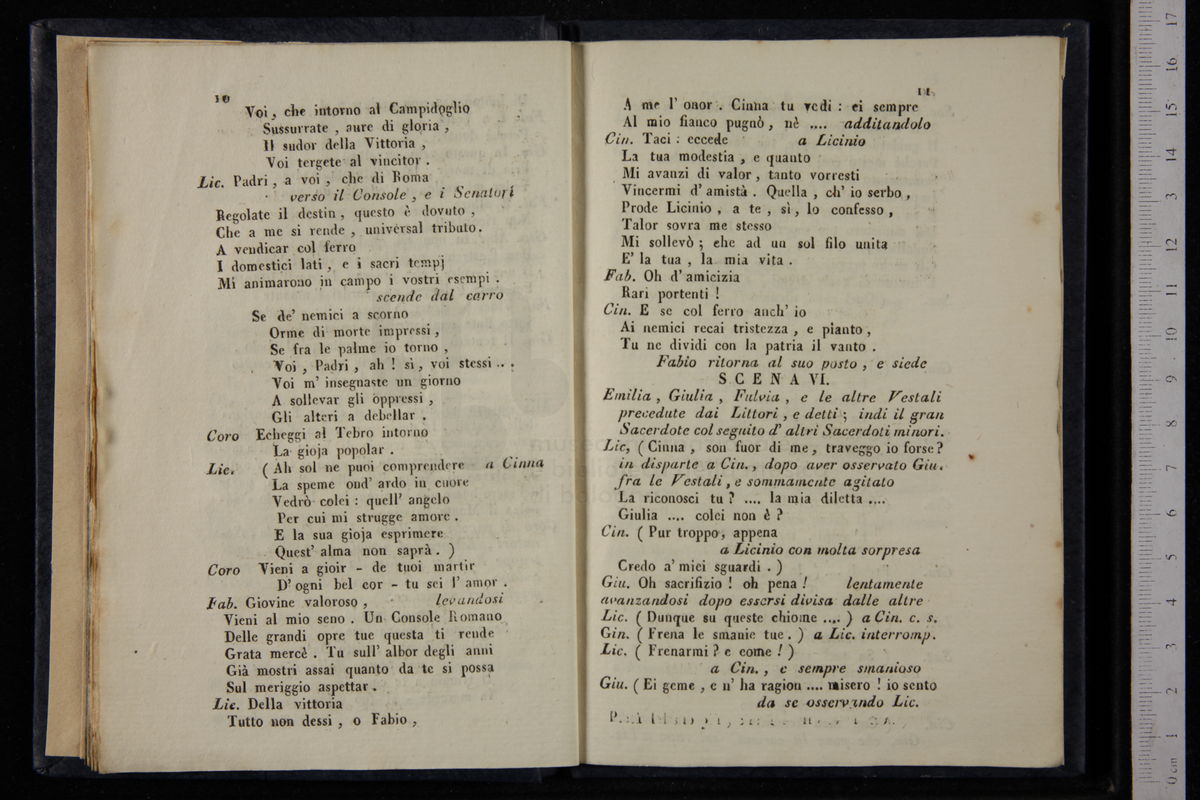 10
Voi, che intorno al Campidoglio
Sussurrate , aure di gloria ,
Il sudor della Vittoria ,
Voi tergete al vincitor .
Lic. Padri , a voi , che di Roma
verso il Console , e i Senatori
Regolate il destin , questo è dovuto ,
Che a me si rende , universal tributo.
A vendicar col ferro
I domestici lati , e i sacri tempj
Mi animarono in campo i vostri esempi .
scende dal carro
Se de' nemici a scorno
Orme di morte impressi ,
Se fra le palme io torno ,
Voi , Padri , ah ! sì , voi stessi ...
Voi m' insegnaste un giorno
A sollevar gli oppressi ,
Gli alteri a debellar .
Coro Echeggi al Tebro intorno
La gioja popolar .
Lic. ( Ah sol ne puoi comprendere a Cinna
La speme ond' ardo in cuore
Vedrò colei : quell' angelo
Per cui mi strugge amore .
E la sua gioja esprimere
Quest' alma non saprà . )
Coro Vieni a gioir - de tuoi martir
D' ogni bel cor - tu sei l' amor .
Fab. Giovine valoroso , levandosi
Vieni al mio seno . Un Console Romano
Delle grandi opre tue questa ti rende
Grata mercè . Tu sull' albor degli anni
Già mostri assai quanto da te si possa
Sul meriggio aspettar .
Lic. Della vittoria
Tutto non dessi , o Fabio ,
11
A me l' onor . Cinna tu vedi : ei sempre
Al mio fianco pugnò , nè .... additandolo
Cin. Taci : eccede a Licinio
La tua modestia , e quanto
Mi avanzi di valor , tanto vorresti
Vincermi d' amistà . Quella , ch' io serbo ,
Prode Licinio , a te , sì , lo confesso ,
Talor sovra me stesso
Mi sollevò ; che ad un sol filo unita
E' la tua , la mia vita .
Fab. Oh d' amicizia
Rari portenti !
Cin. E se col ferro anch' io
Ai nemici recai tristezza , e pianto ,
Tu ne dividi con la patria il vanto .
Fabio ritorna al suo posto , e siede
SCENA VI.
Emilia , Giulia , Fulvia , e le altre Vestali
precedute dai Littori , e detti ; indi il gran
Sacerdote col seguito d' altri Sacerdoti minori.
Lic, ( Cinna , son fuor di me , traveggo io forse ?
in disparte a Cin. , dopo aver osservato Giu.
fra le Vestali , e sommamente agitato
La riconosci tu ? .... la mia diletta ....
Giulia .... colei non è ?
Cin. ( Pur troppo , appena
a Licinio con molta sorpresa
Credo a' miei sguardi . )
Giu. Oh sacrifizio ! oh pena ! lentamente
avanzandosi dopo essersi divisa dalle altre
Lic. ( Dunque su queste chiome .... ) a Cin. c. s.
Cin. ( Frena le smanie tue . ) a Lic. interromp.
Lic. ( Frenarmi ? e come ! )
a Cin. , e sempre smanioso
Giu. ( Ei geme , e n' ha ragion .... misero ! io sento
da se osservando Lic.